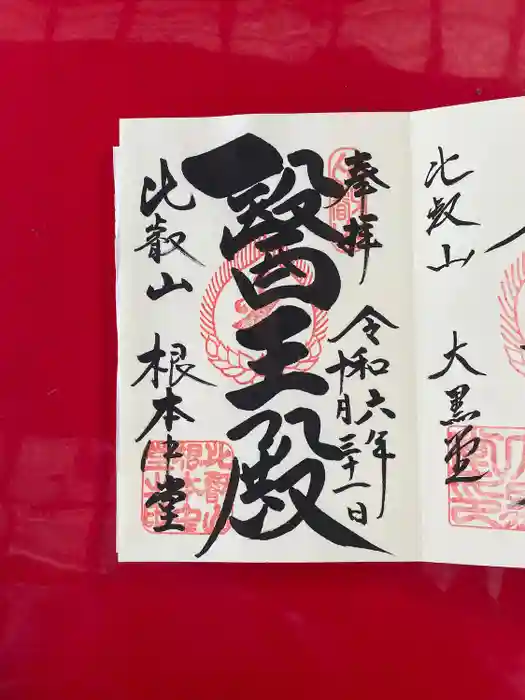 比叡山
大黒堂
奉拝
令和六年
十月三十一日
醫王殿
比叡山
根本中堂